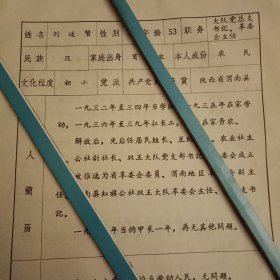 姓名 刘述贤 性别 年龄 53 职务 大队党总支书记、革委会主任
民族 汉 家庭出身 贫 本人成份 农民
文化程度 初小 党派 共产党 籍贯 陕西省渭南县
个人简历
一九三二年至三四年当学 三五年在家劳
动。一九三六年至三九年扛长工， 在家务农。
解放后，先后任居民组长、互 农业社主
公社副社长、双王大队党支部书记 委会成立
被推选为省革委会委员、渭南地区革 副主
任、 南县红旗公社双王大队革委会主任、 支书
记。
一九 年当伪甲长一年，再无其他问题。
劳动人民，无问题。